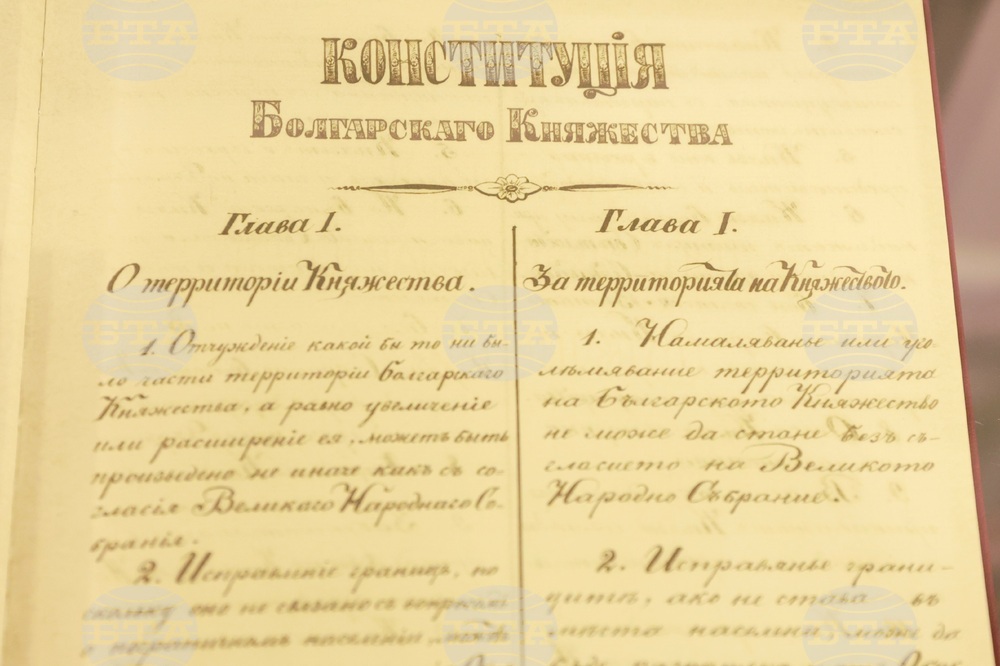 КОНСТИТУЦІЯ
БОЛГАРСКАГО КНЯЖЕСТВА
Глава I.
О территоріи Княжества.
1. Отчужденіе какой бы то ни бы-
ло части территоріи Болгарскаго
Княжества, а равно увеличеніе
или расширеніе ея, можетъ быть
произведено не иначе какъ съ со-
гласія Великаго Народнаго Со-
бранія.
2. Исправленіе границъ, по
скольку оно не связано съ вопросомъ
о пограничномъ населеніи,
Глава I.
За территорията на Княжеството.
1. Намаляванье или уго-
лѣмявание территорията
на Българското Княжество
не може да стане безъ съ-
гласието на Великото
Народно Събрание.
2. Исправянье грани-
цитѣ, ако не става въ
мѣста населени, може да
БТА
БТА
БТА
БТА
БТА
БТА
БТА
БТА
БТА